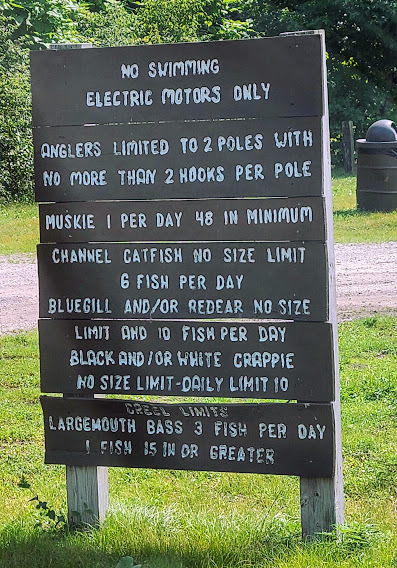 NO SWIMMING
ELECTRIC MOTORS ONLY
ANGLERS LIMITED TO 2 POLES WITH
NO MORE THAN 2 HOOKS PER POLE
MUSKIE 1 PER DAY 48 IN MINIMUM
CHANNEL CATFISH NO SIZE LIMIT
6 FISH PER DAY
BLUEGILL AND/OR REDEAR NO SIZE
LIMIT AND 10 FISH PER DAY
BLACK AND/OR WHITE CRAPPIE
NO SIZE LIMIT-DAILY LIMIT 10
CREEL LIMITS
LARGEMOUTH BASS 3 FISH PER DAY
1 FISH 15 IN OR GREATER